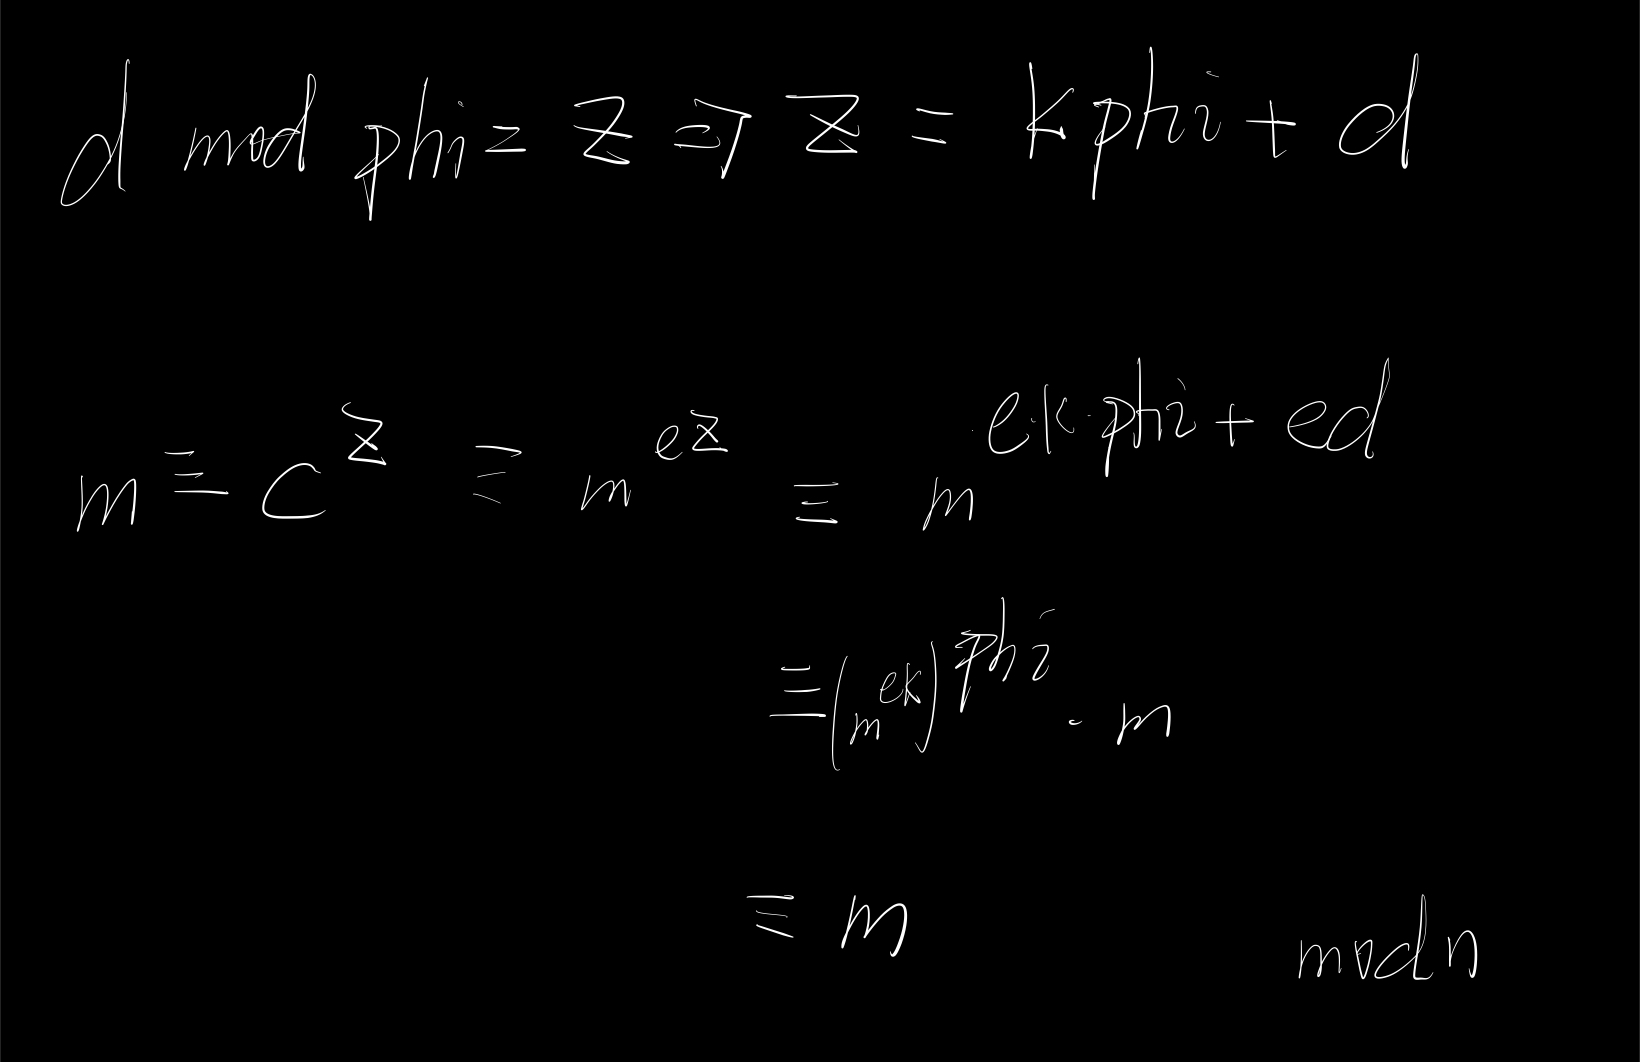 d mod phi = z ⇒ z = k phi + d
m ≡ c^z ≡ m^{ez} ≡ m^{e·k·phi + ed}
≡ (m^{ek})^{phi} · m
≡ m mod n